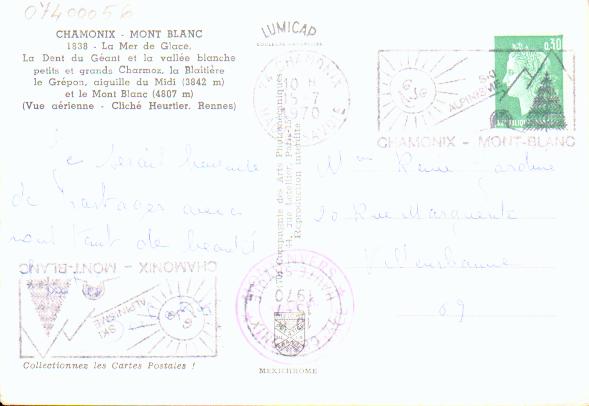 07400056
CHAMONIX - MONT BLANC
1838 - La Mer de Glace.
La Dent du Géant et la vallée blanche
petits et grands Charmoz, la Blaitière
le Grépon, aiguille du Midi (3842 m)
et le Mont Blanc (4807 m)
(Vue aérienne - Cliché Heurtier, Rennes)
Je serait heureuse
de partager avec
vous tant de beauté
CHAMONIX - MONT-BLANC
SKI
ALPINISME
Collectionnez les Cartes Postales !
LUMICAP
Compagnie des Arts Photomécaniques
44, rue Letellier, Paris-15
Reproduction interdite
MEXICHROME
CHAMONIX
10 H
15 - 7
1970
HAUTE-SAVOIE
1970
SKI
ALPINISME
CHAMONIX - MONT-BLANC
0,30
Mme Reine Jardine
20 Rue Marguerite
Villeurbanne
69